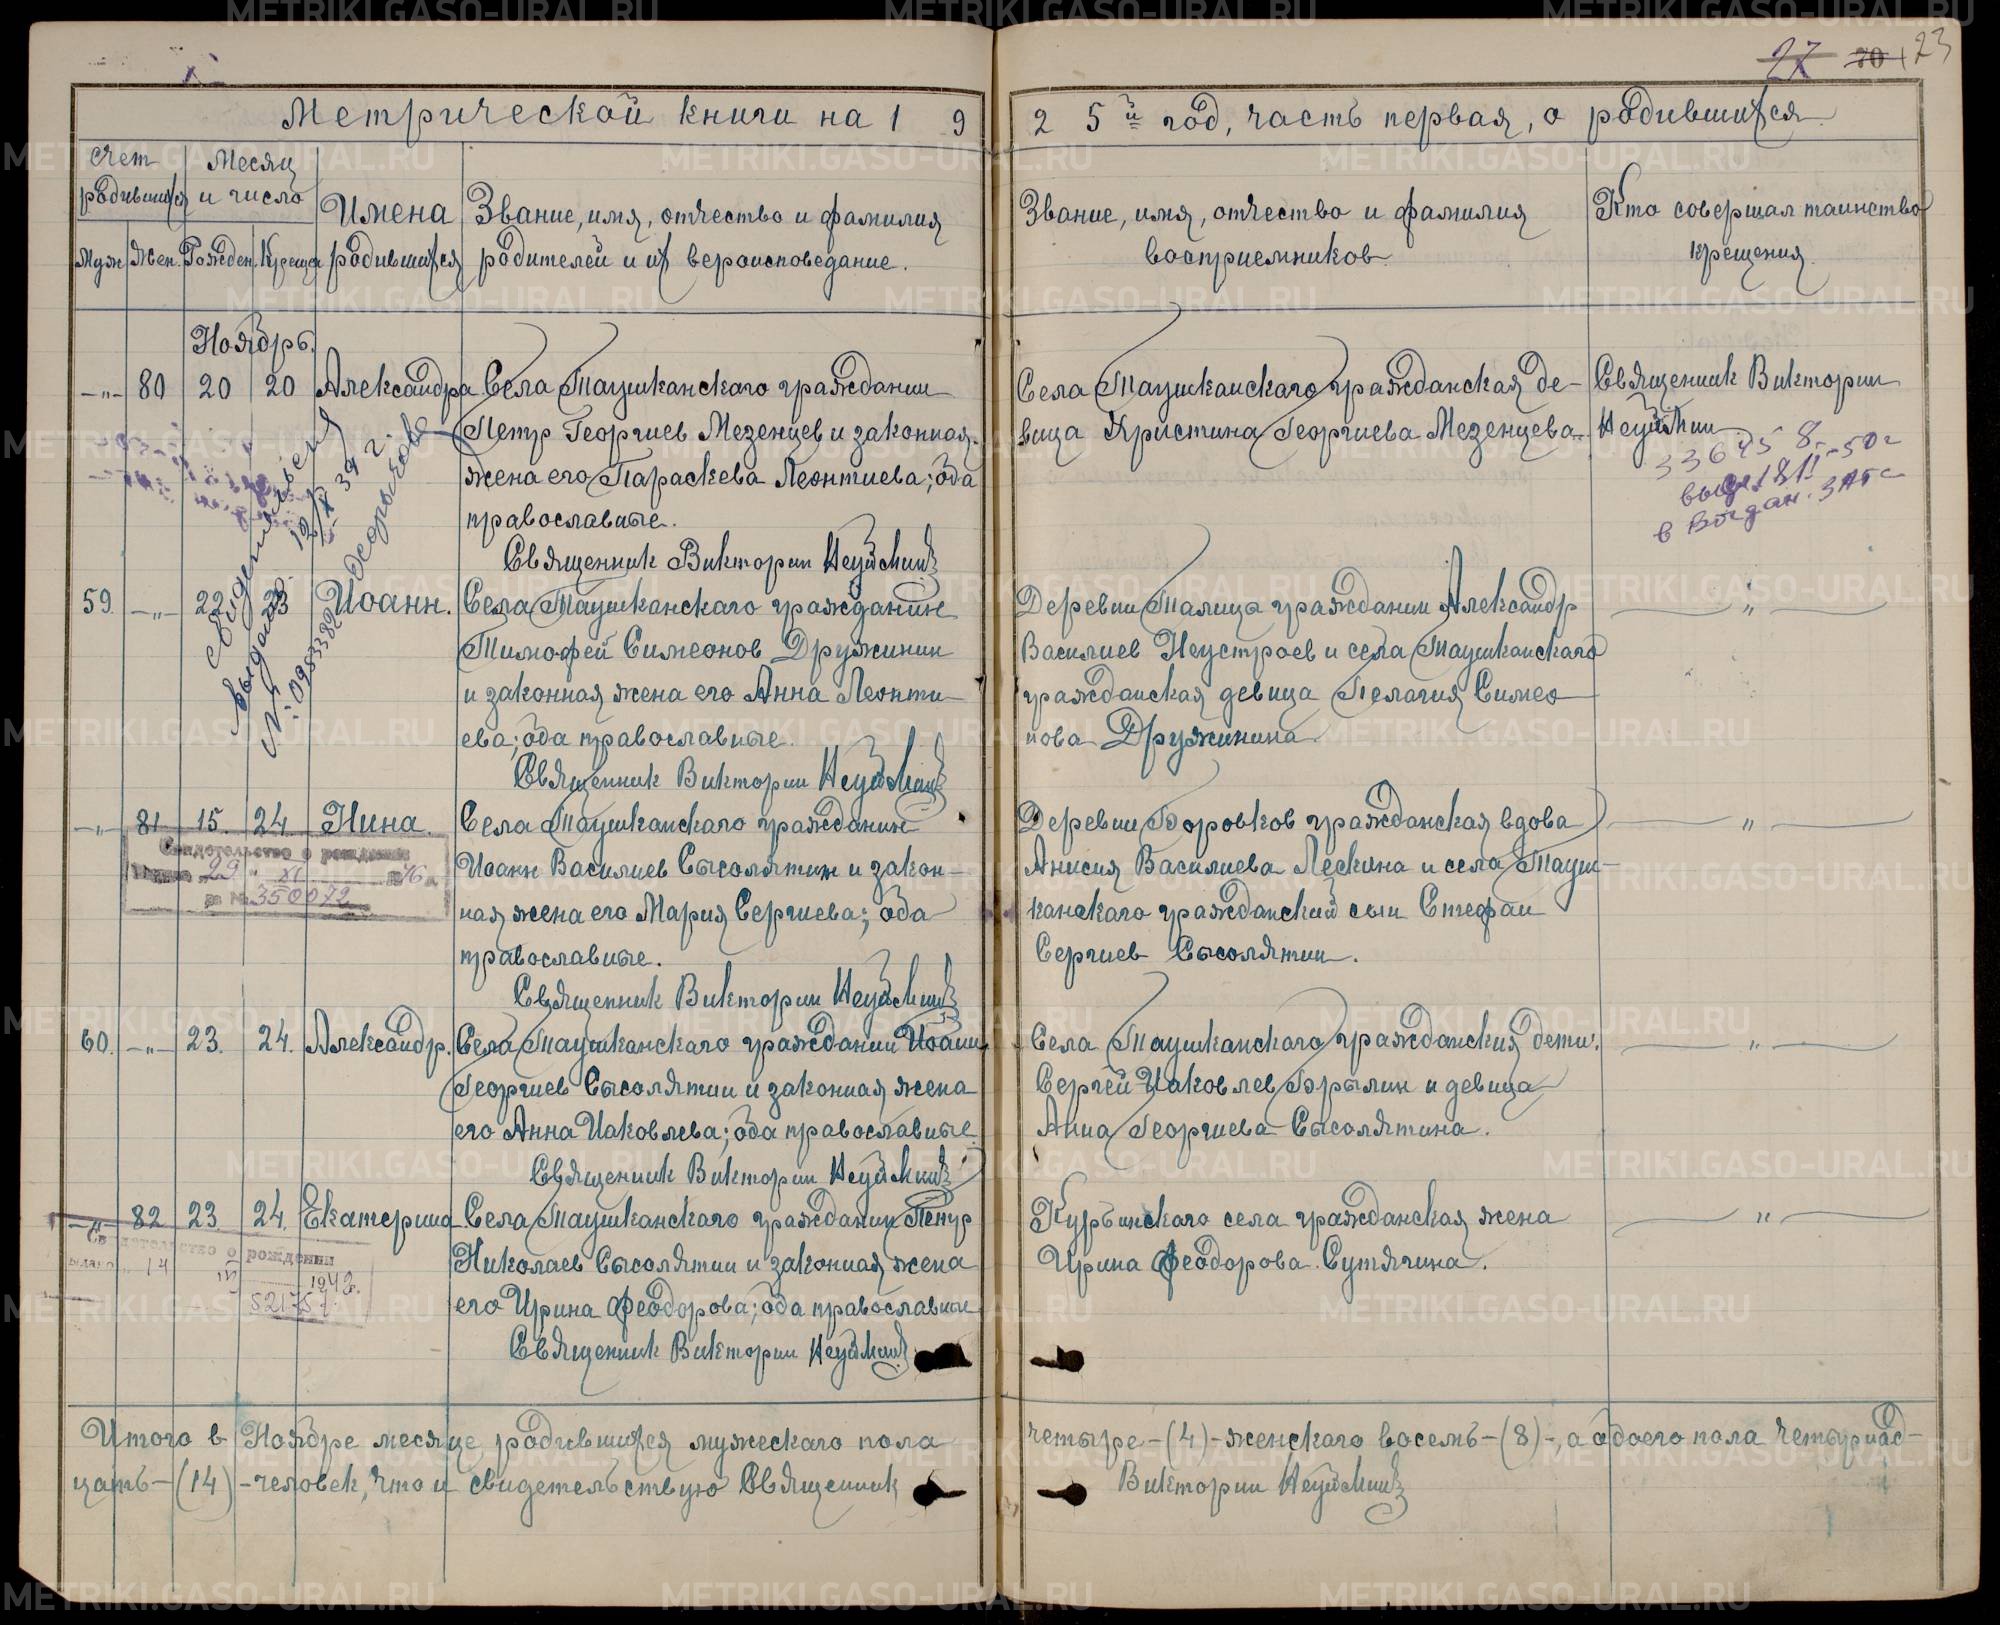 27 70 23
Метрической книги на 19
25й год, часть первая, о родившихся
Счет родившихся
Месяц и число
Муж. Жен. Рожден. Крещен.
Имена родившихся
Звание, имя, отчество и фамилия
родителей и их вероисповедание.
Звание, имя, отчество и фамилия
восприемников.
Кто совершал таинство
крещения.
Ноябрь.
—„— 80 20 20 Александра
Села Таушканскаго гражданин
Петр Георгиев Мезенцев и законная
жена его Параскева Леонтиева; оба
православные.
Священник Викторин Неуймин
Села Таушканскаго гражданская де-
вица Христина Георгиева Мезенцева.
Священник Викторин
Неуймин.
свидетельсво
выдано
12/X 39 г.
№ 0983382
336458
50г
в Богдан. ЗАГС
59. —„— 22 23 Иоанн.
Села Таушканскаго гражданин
Тимофей Симеонов Дружинин
и законная жена его Анна Леонти-
ева; оба православные.
Священник Викторин Неуймин
Деревни Талица гражданин Александр
Василиев Неустроев и села Таушканскаго
гражданская девица Пелагия Симео-
нова Дружинина.
— „ —
—„— 81 15. 24 Нина.
Села Таушканскаго гражданин
Иоанн Василиев Сысолятин и закон-
ная жена его Мария Сергиева; оба
православные.
Священник Викторин Неуймин
Деревни Боровков гражданская вдова
Анисия Василиева Лескина и села Тауш-
канскаго гражданский сын Стефан
Сергиев Сысолятин.
— „ —
Свидетельство о рождении
29 XI 46
за № 350072
60. —„— 23. 24. Александр.
Села Таушканскаго гражданин Иоанн
Георгиев Сысолятин и законная жена
его Анна Иаковлева; оба православные.
Священник Викторин Неуймин
Села Таушканскаго гражданския дети:
Сергей Иаковлев Брылин и девица
Анна Георгиева Сысолятина.
— „ —
—„— 82 23 24. Екатерина
Села Таушканскаго гражданин Петр
Николаев Сысолятин и законная жена
его Ирина Феодорова; оба православные
Священник Викторин Неуймин
Курьинскаго села гражданская жена
Ирина Феодорова Сутягина.
— „ —
Свидетельство о рождении
14
Итого в Ноябре месяце родившихся мужескаго пола
четыре-(4)-женскаго восемь-(8)-, а обоего пола четырнад-
цать-(14)-человек, что и свидетельствую Священник
Викторин Неуймин
METRIKI.GASO-URAL.RU